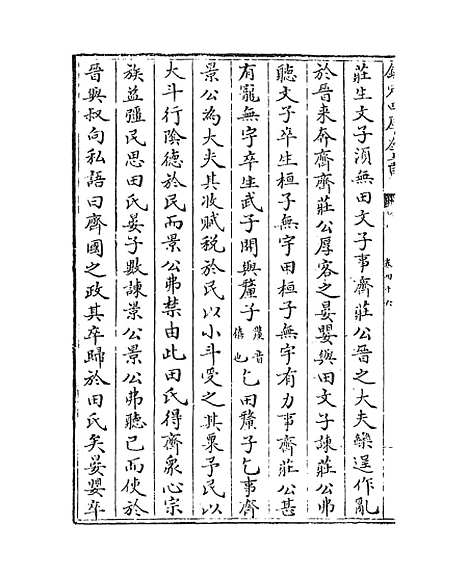 欽定四庫全書
卷四十六
莊生文子湏無田文子事齊莊公晉之大夫欒逞作亂
於晉来奔齊齊莊公厚客之晏嬰與田文子諫莊公弗
聽文子卒生桓子無宇田桓子無宇有力事齊莊公甚
有寵無宇卒生武子開與釐子漢音僖也乞田釐子乞事齊
景公為大夫其收賦税於民以小斗受之其粟予民以
大斗行陰德於民而景公弗禁由此田氏得齊衆心宗
族益彊民思田氏晏子數諫景公景公弗聽已而使於
晉與叔向私語曰齊國之政其卒歸於田氏矣晏嬰卒